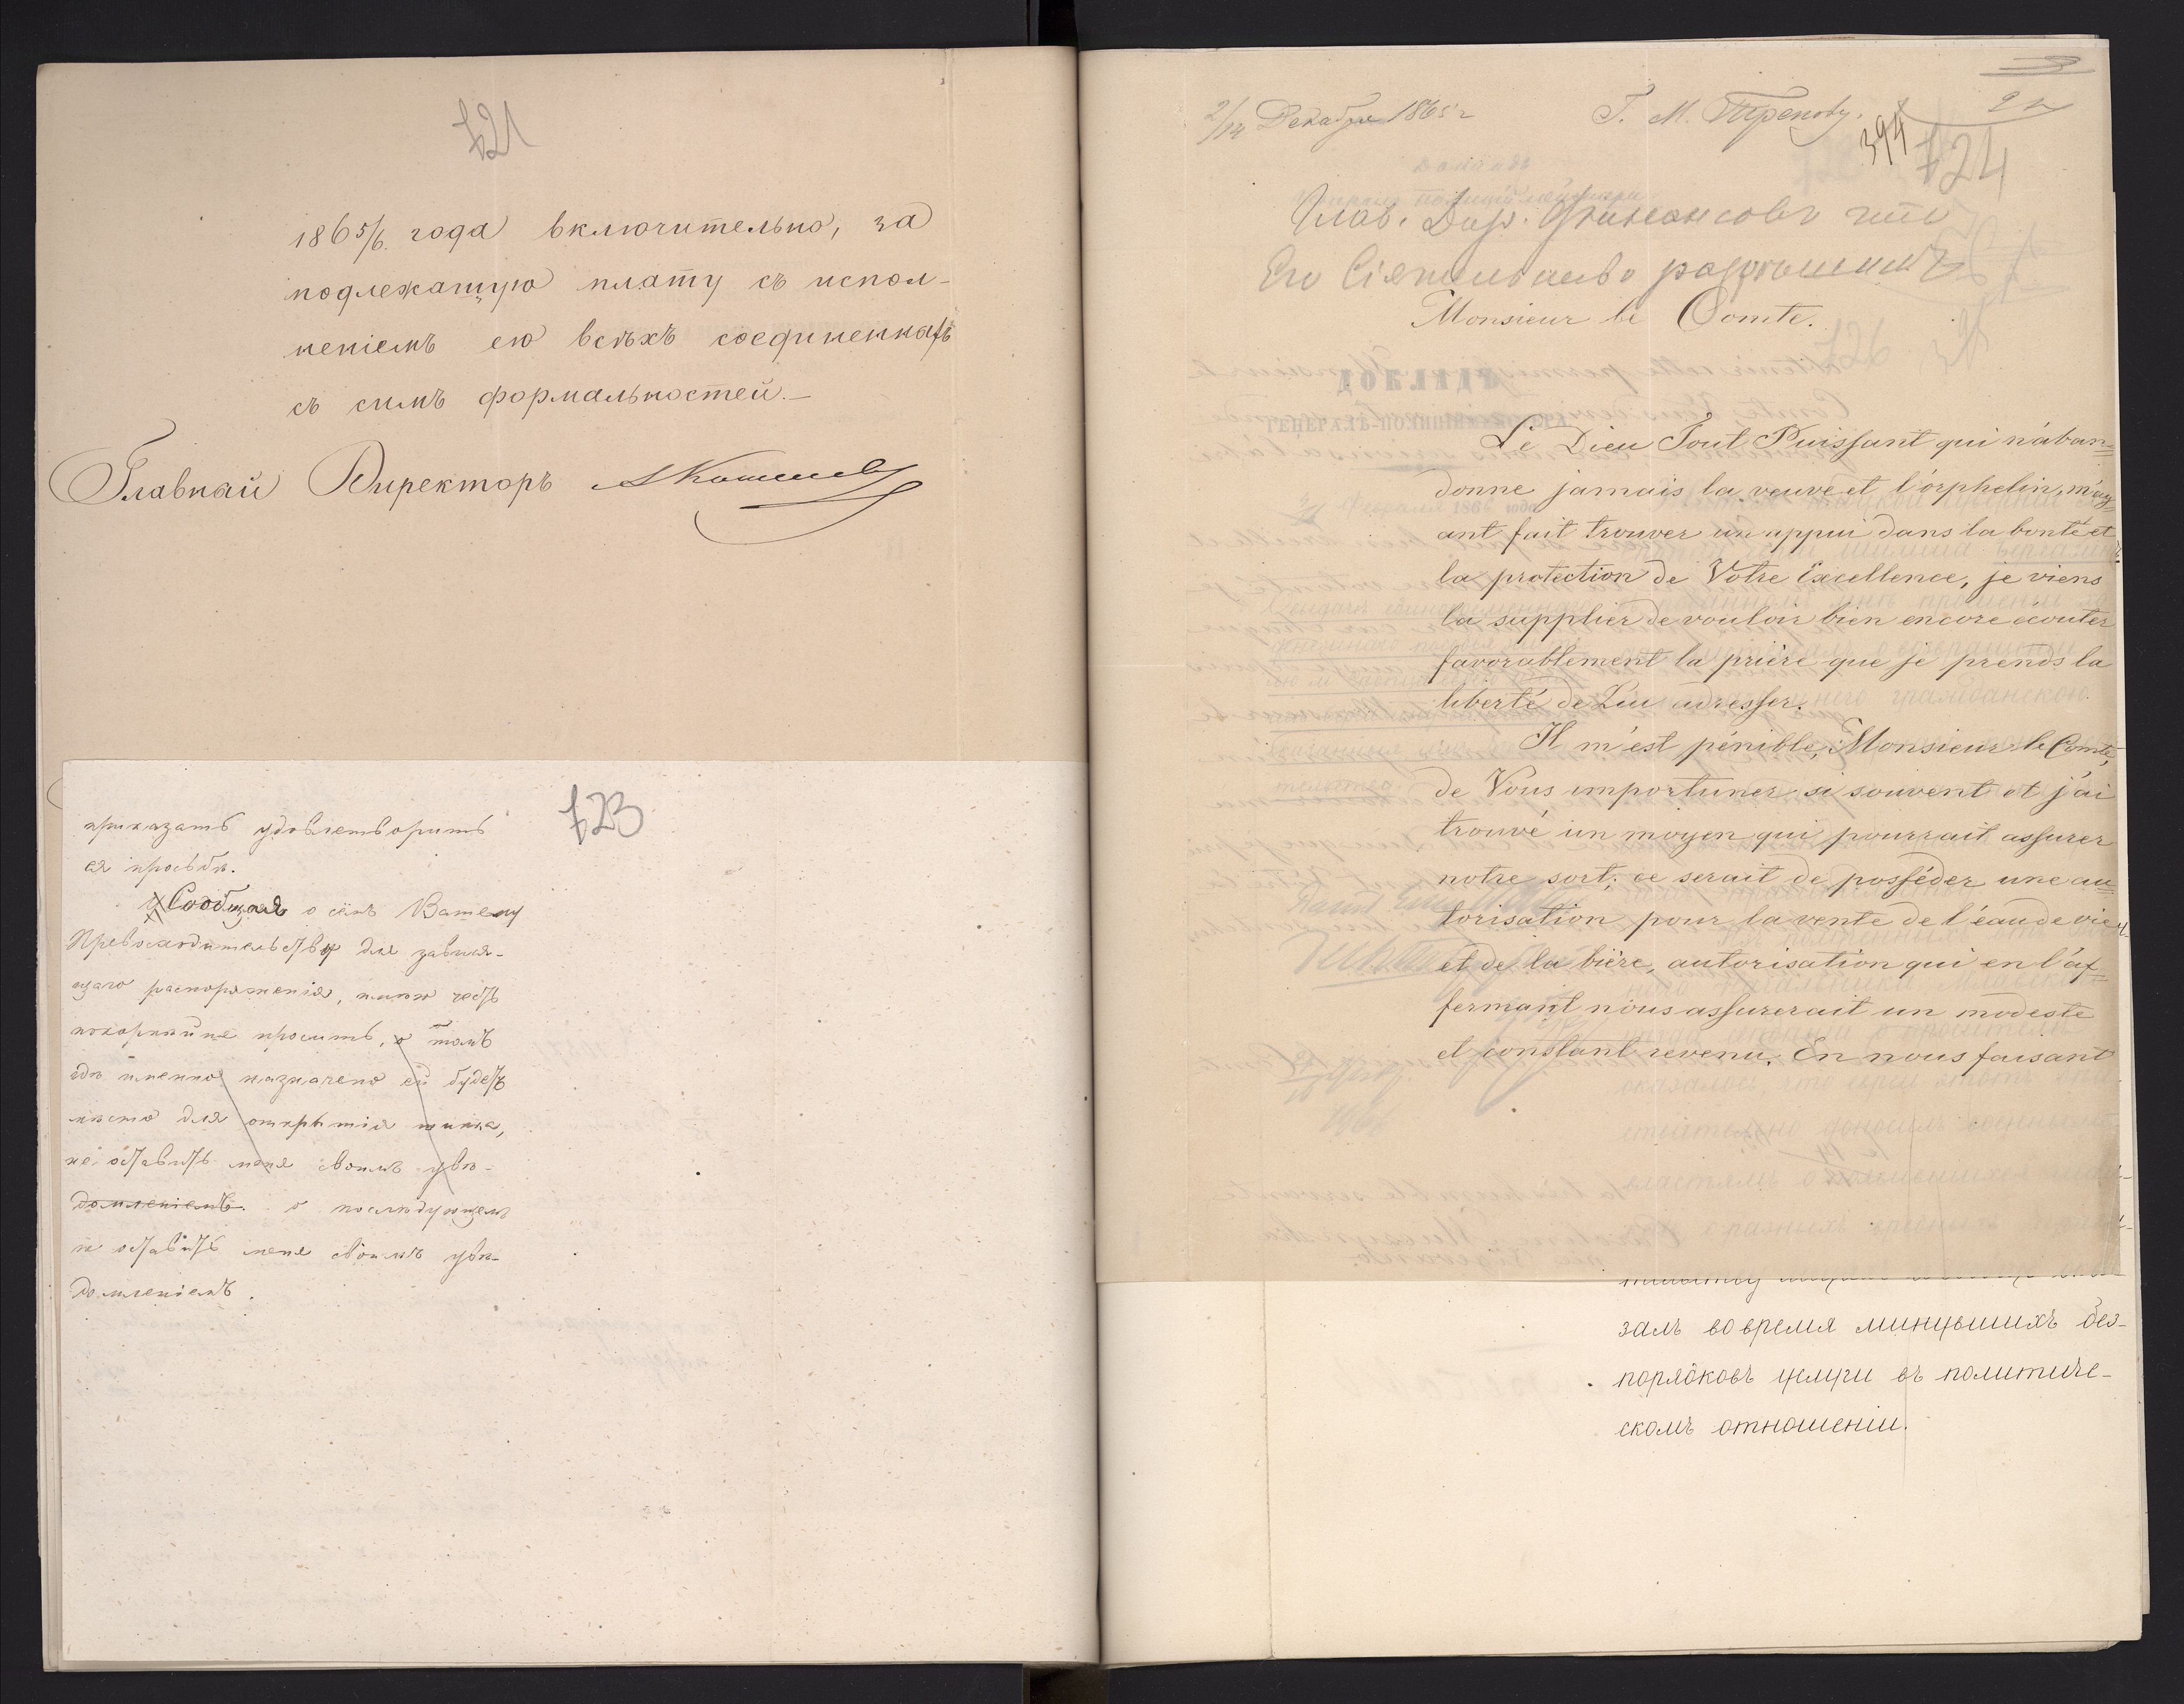 121
1865/6. года включительно, за
подлежащую плату съ испол-
неніемъ ею всѣхъ соединенныхъ
съ симъ формальностей.—
Главный Директоръ
123
приказать удовлетворить
ея просьбѣ.
Сообщая о семъ Вашему
Превосходительству для зависящ-
щаго распоряженія, имѣю честь
покорнѣйше просить, о томъ
гдѣ именно назначено ей будетъ
мѣсто для открытія шинка,
не оставить меня своимъ увѣ-
домленіемъ. о послѣдующемъ
не оставить меня своимъ увѣ-
домленіемъ.
2/14 Декабря 1865 г
Г. М. Трепову.
394
124
Глав. Дир. Финансовъ что
Его Сіятельство разрѣшилъ
Monsieur le Comte.
Le Dieu Tout Puissant qui n'aban=
donne jamais la veuve et l'orphelin, m'ay=
ant fait trouver un appui dans la bonté et
la protection de Votre Excellence, je viens
la supplier de vouloir bien encore écouter
favorablement la prière que je prends la
liberté de Lui adresser.
Il m'est pénible, Monsieur le Comte,
de Vous importuner si souvent et j'ai
trouvé un moyen qui pourrait assurer
notre sort; ce serait de posséder une au=
torisation pour la vente de l'eau de vie
et de la bière, autorisation qui en l'af=
fermant nous assurerait un modeste
et constant revenu. En nous faisant
залъ во время минувшихъ без-
порядковъ услуги въ политиче-
скомъ отношеніи.